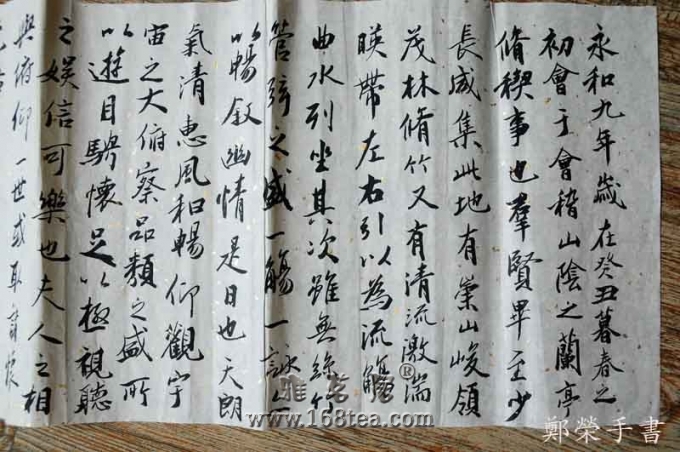 永和九年歲在癸丑暮春之
初會于會稽山陰之蘭亭
脩稧事也羣賢畢至少
長咸集此地有崇山峻領
茂林脩竹又有清流激湍
暎帶左右引以為流觴
曲水列坐其次雖無絲竹
管弦之盛一觴一詠亦
以暢敘幽情是日也天朗
氣清惠風和暢仰觀宇
宙之大俯察品類之盛所
以遊目騁懷足以極視聽
之娛信可樂也夫人之相
與俯仰一世或取諸懷
雅茗®
www.168tea.com
鄭榮手書